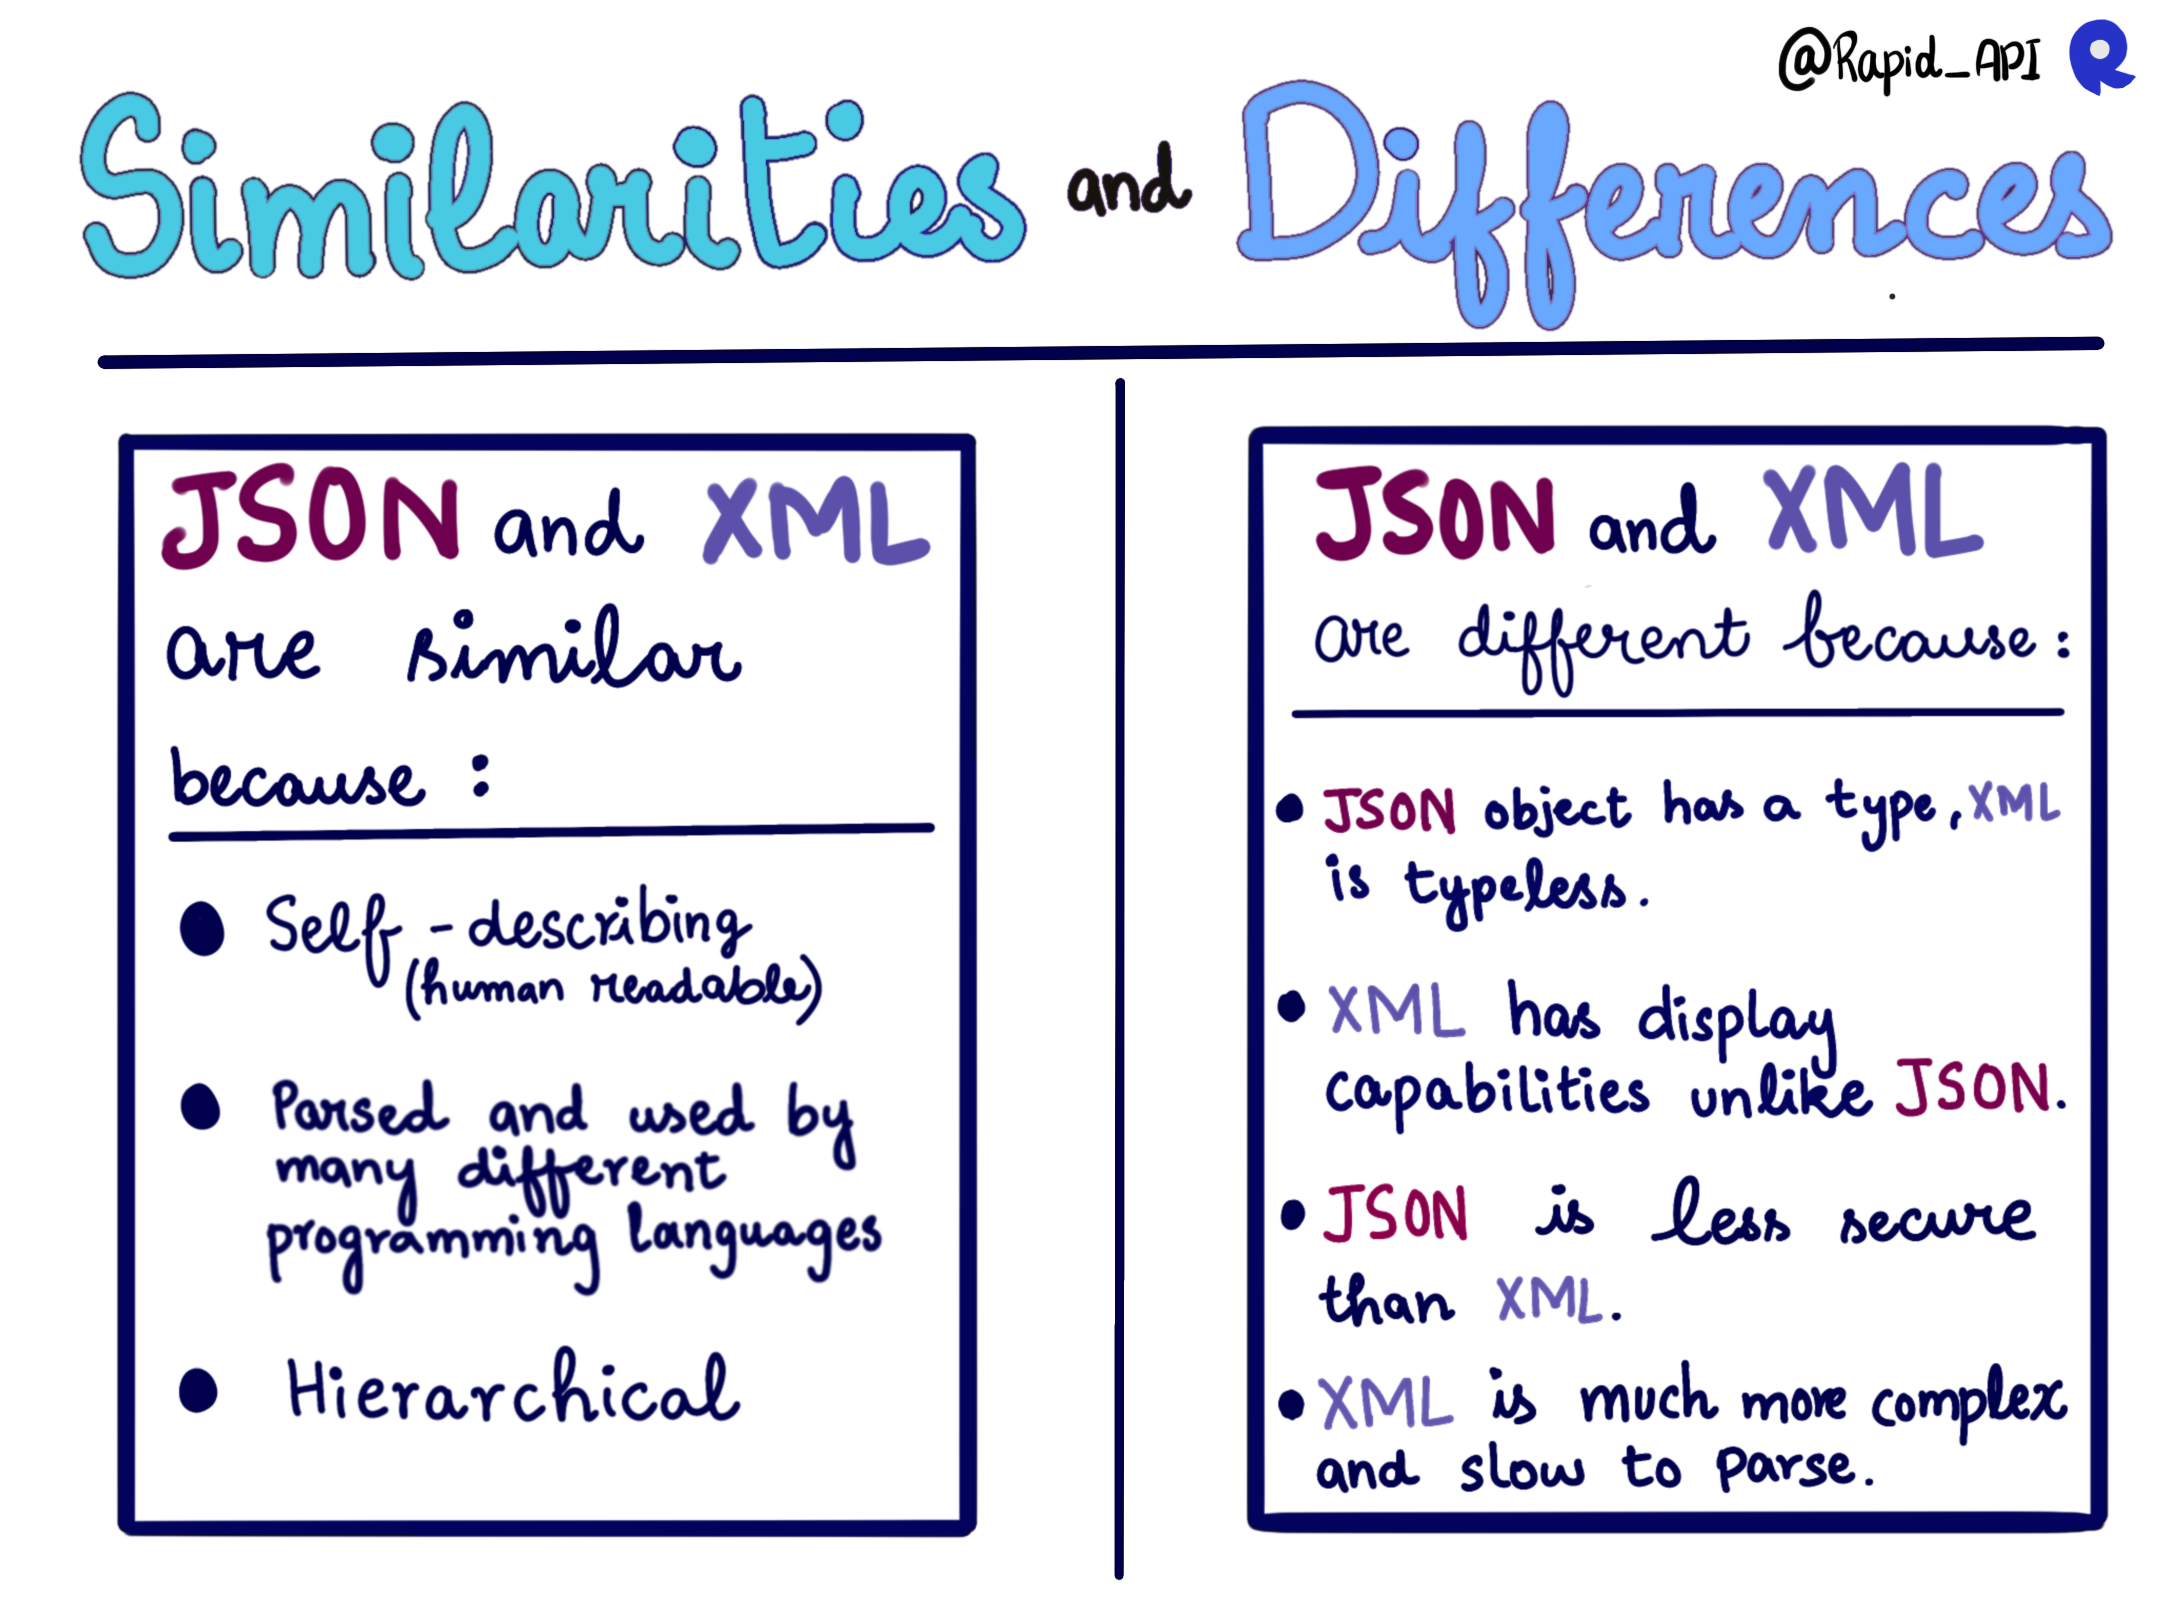 @Rapid_API
Similarities and Differences
JSON and XML
are similar
because :
Self-describing
(human readable)
Parsed and used by
many different
programming languages
Hierarchical
JSON and XML
are different because :
JSON object has a type, XML
is typeless.
XML has display
capabilities unlike JSON.
JSON is less secure
than XML.
XML is much more complex
and slow to parse.